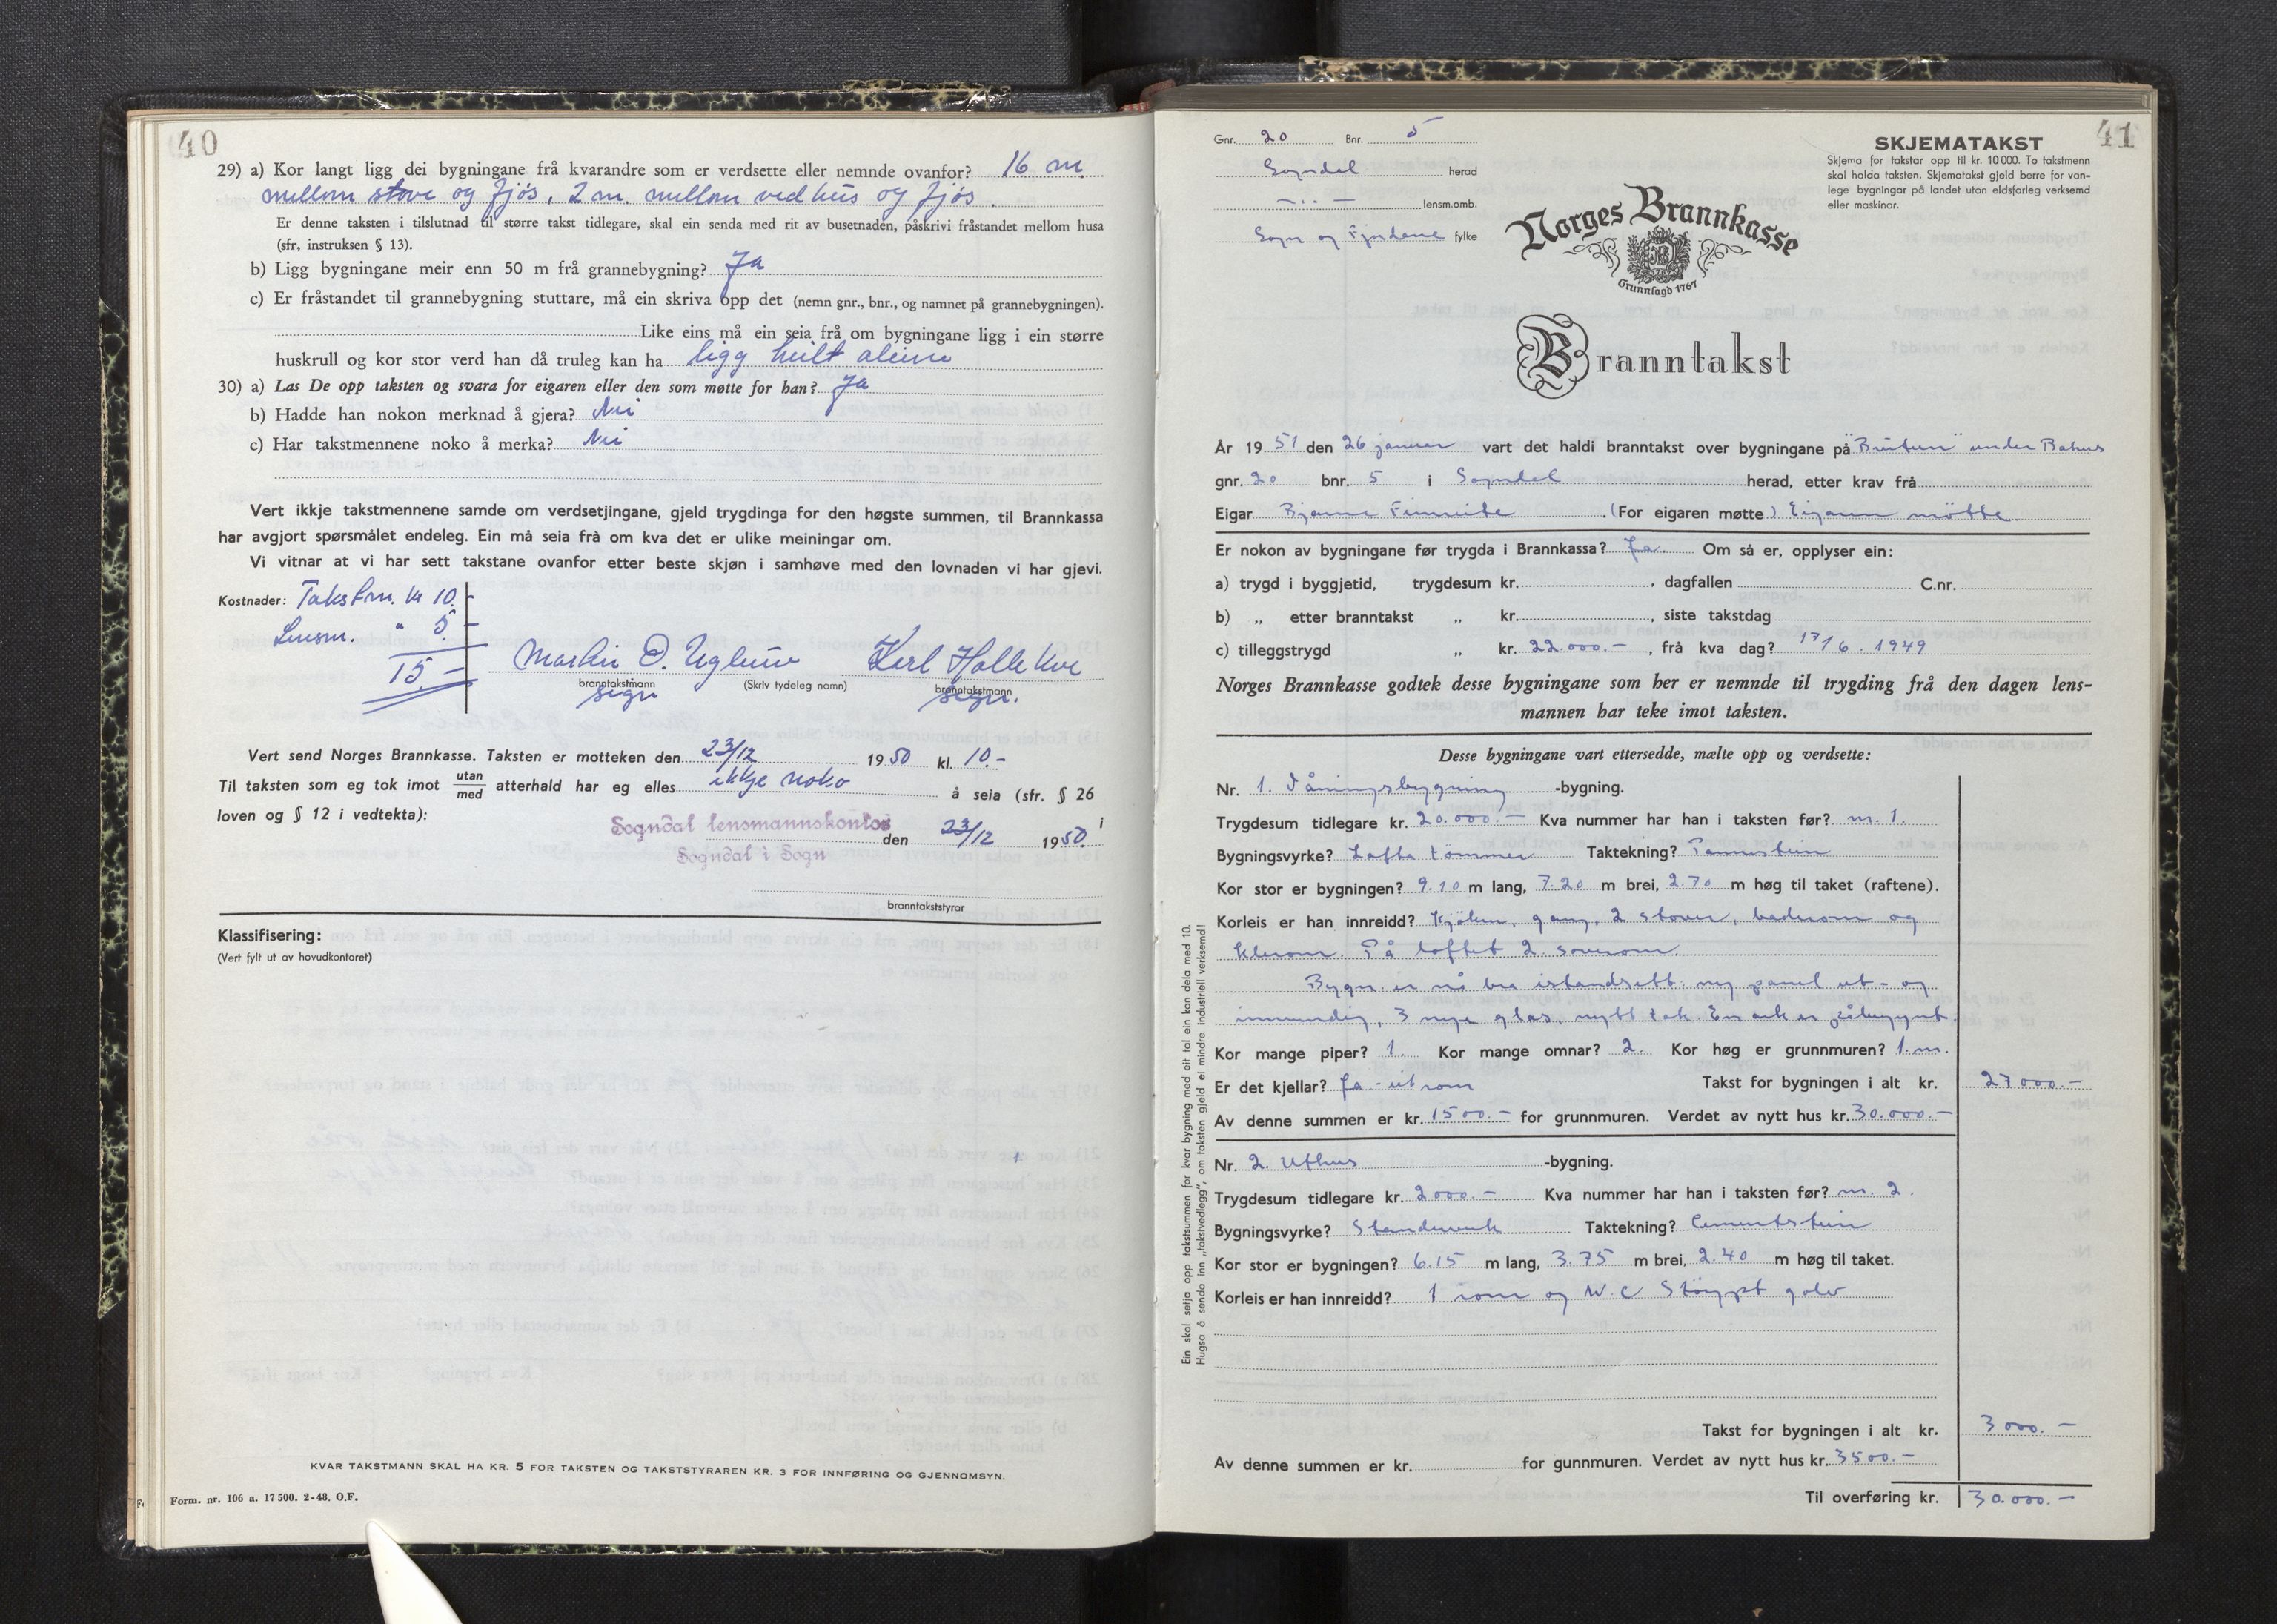 40
29) a) Kor langt ligg dei bygningane frå kvarandre som er verdsette eller nemnde ovanfor? 16 m
mellom stove og fjøs, 2 m. mellom vedhus og fjøs.
Er denne taksten i tilslutnad til større takst tidlegare, skal ein senda med rit av busetnaden, påskrivi fråstandet mellom husa
(sfr, instruksen § 13).
b) Ligg bygningane meir enn 50 m frå grannebygning? Ja
c) Er fråstandet til grannebygning stuttare, må ein skriva opp det (nemn gnr., bnr., og namnet på grannebygningen).
Like eins må ein seia frå om bygningane ligg i ein større
huskrull og kor stor verd han då truleg kan ha ligg heilt aleine
30) a) Las De opp taksten og svara for eigaren eller den som møtte for han? Ja
b) Hadde han nokon merknad å gjera? Nei
c) Har takstmennene noko å merka? Nei
Vert ikkje takstmennene samde om verdsetjingane, gjeld trygdinga for den høgste summen, til Brannkassa
har avgjort spørsmålet endeleg. Ein må seia frå om kva det er ulike meiningar om.
Vi vitnar at vi har sett takstane ovanfor etter beste skjøn i samhøve med den lovnaden vi har gjevi.
Kostnader: Takstm. kr 10.-
Lensm. " 5.-
15.-
Martin O. Uglum Karl Hollekve
branntakstmann (Skriv tydeleg namn) branntakstmann
sign sign.
Vert send Norges Brannkasse. Taksten er motteken den 23/12 1950 kl. 10.-
Til taksten som eg tok imot utan/med atterhald har eg elles ikkje noko å seia (sfr. § 26
loven og § 12 i vedtekta): i
Sogndal lensmannskontor den 23/12 1950.
Sogndal i Sogn
branntakststyrar
Klassifisering:
(Vert fylt ut av hovudkontoret)
KVAR TAKSTMANN SKAL HA KR. 5 FOR TAKSTEN OG TAKSTSTYRAREN KR. 3 FOR INNFØRING OG GJENNOMSYN.
Form. nr. 106 a. 17500. 2-48. O.F.
41
Gnr. 20 Bnr. 5
Sogndal herad
- " - lensm.omb.
Sogn og Fjordane fylke
SKJEMATAKST
Skjema for takstar opp til kr. 10 000. To takstmenn
skal halda taksten. Skjematakst gjeld berre for van-
lege bygningar på landet utan eldsfarleg verksemd
eller maskinar.
Norges Brannkasse
Grunnlagd 1767
Branntakst
År 1951 den 26 januar vart det haldi branntakst over bygningane på "Breiten" under Bahus
gnr. 20 bnr. 5 i Sogndal herad, etter krav frå
Eigar Bjarne Fimreite. (For eigaren møtte) Eigaren møtte.
Er nokon av bygningane før trygda i Brannkassa? Ja. Om så er, opplyser ein:
a) trygd i byggjetid, trygdesum kr. , dagfallen C.nr.
b) „ etter branntakst „ kr. , siste takstdag
c) tilleggstrygd „ kr. 22.000.- , frå kva dag? 17/6. 1949
Norges Brannkasse godtek desse bygningane som her er nemnde til trygding frå den dagen lens-
mannen har teke imot taksten.
Desse bygningane vart ettersedde, mælte opp og verdsette:
Nr. 1. Våningsbygning -bygning.
Trygdesum tidlegare kr. 20.000.- Kva nummer har han i taksten før? nr. 1.
Bygningsvyrke? Lafta tømmer Taktekning? Pannestein
Kor stor er bygningen? 9.10 m lang, 7.20 m brei, 2.70 m høg til taket (raftene).
Korleis er han innreidd? Kjøken, gang, 2 stover, baderom og
klerom. På loftet 2 soverom.
Bygn. er nå bra istandsett: ny panel ut- og
innvendig, 3 nye glas, nytt tak. En ark er påbegynt.
Kor mange piper? 1. Kor mange omnar? 2. Kor høg er grunnmuren? 1. m.
Er det kjellar? Ja - eit rom Takst for bygningen i alt kr. 27000.-
Av denne summen er kr. 1500.- for grunnmuren. Verdet av nytt hus kr. 30.000.-
Nr. 2. Uthus -bygning.
Trygdesum tidlegare kr. 2000.- Kva nummer har han i taksten før? nr. 2.
Bygningsvyrke? Standerverk Taktekning? Cementstein
Kor stor er bygningen? 6.15 m lang, 3.75 m brei, 2.40 m høg til taket.
Korleis er han innreidd? 1 rom og W.C Støypt golv
Takst for bygningen i alt kr. 3000.-
Av denne summen er kr. for gunnmuren. Verdet av nytt hus kr. 3500.-
Til overføring kr. 30.000.-
Ein skal setja opp takstsummen for kvar bygning med eit tal ein kan dela med 10.
Hugsa å senda inn „takstvedlegg", om taksten gjeld ei mindre industriell verksemd!